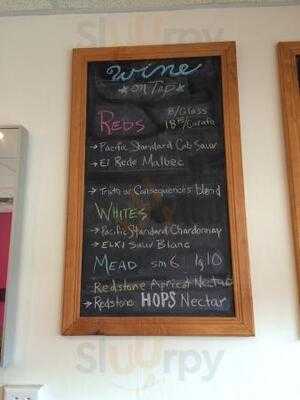 slurrpy
Wine
on Tap
8/Glass
REDS 18 50/Carafe
→ Pacific Standard Cab Sauv
→ El Rede Malbec
→ Truth or Consequences blend
WHITES
→ Pacific Standard Chardonnay
→ ELKI Sauv Blanc
MEAD sm 6 lg. 10
Redstone Apricot Nectar
→ Redstone HOPS Nectar
slurrpy